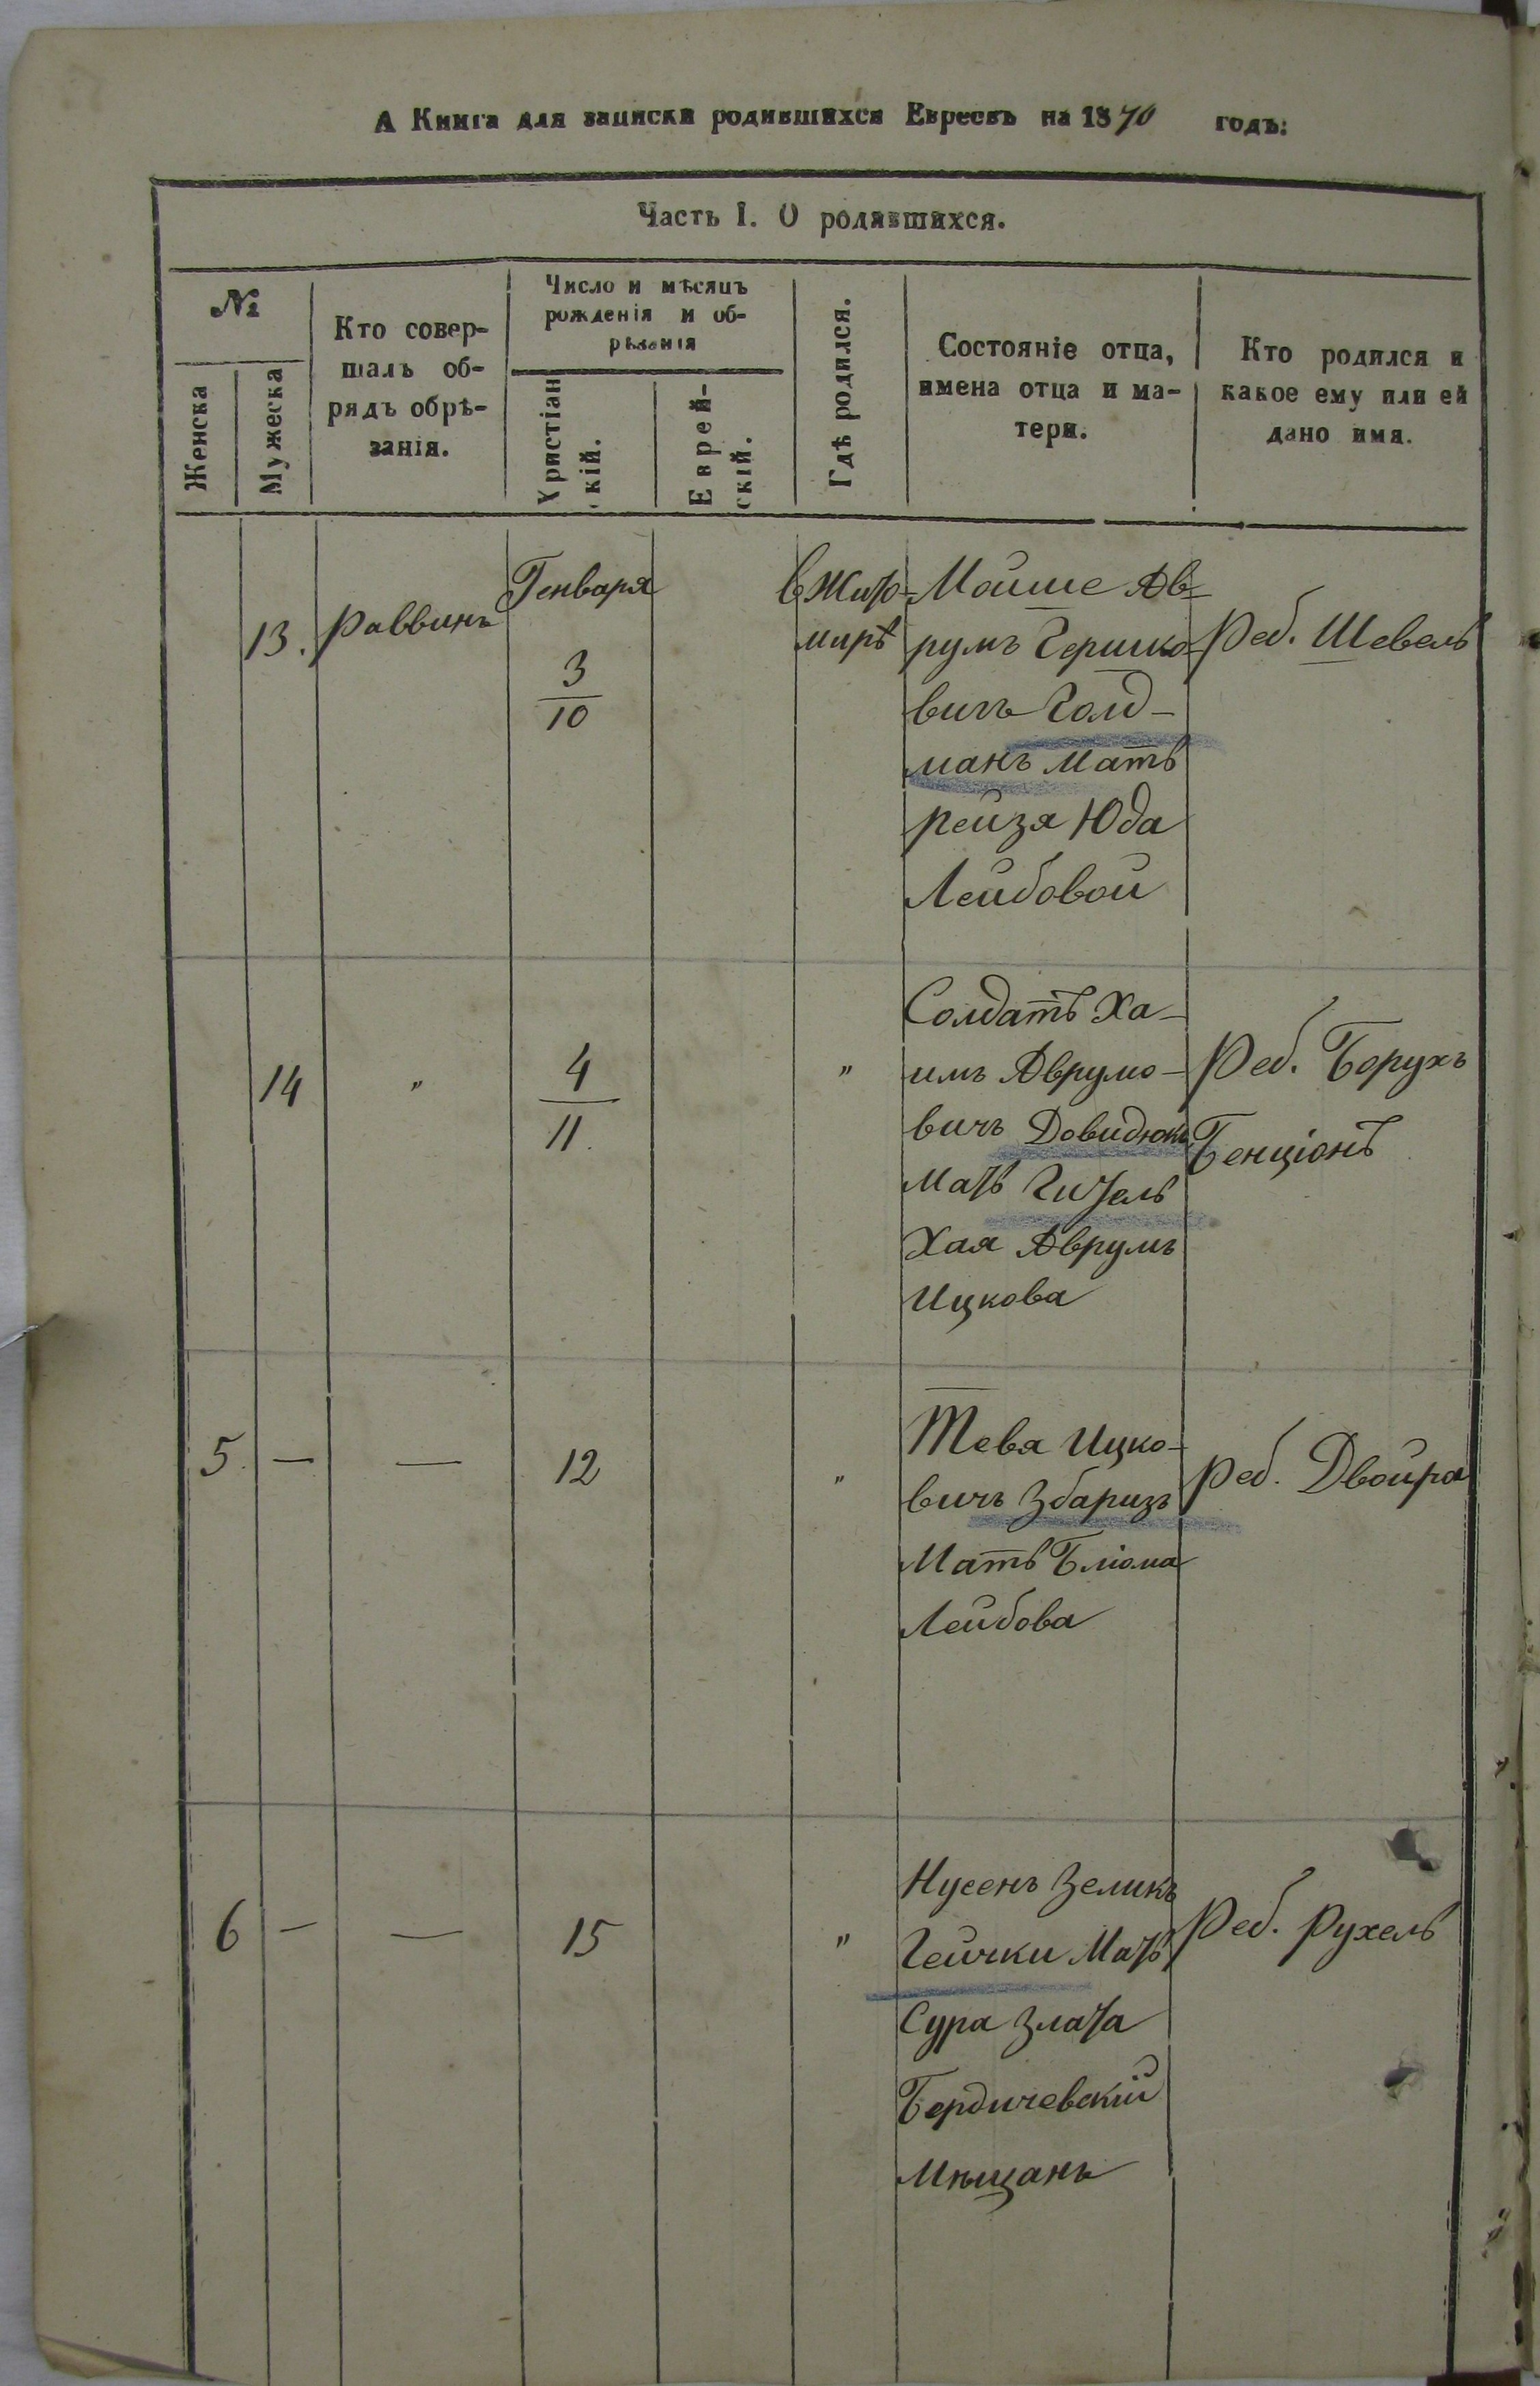 А Книга для записки родившихся Евреевъ на 1870 годъ:
Часть I. О родившихся.
№
Женска
Мужеска
Кто совер-
шалъ об-
рядъ обрѣ-
занія.
Число и мѣсяцъ
рожденія и об-
рѣзанія
Христіан
скій.
Еврей-
скій.
Гдѣ родился.
Состояніе отца,
имена отца и ма-
тери.
Кто родился и
какое ему или ей
дано имя.
13.
Раввинъ
Генваря
3
10
в Жито-
мирѣ
Мойше Ав-
румъ Гершко-
вичъ Голд-
манъ Мать
Рейзя Юда
Лейбовой
Реб. Шевель
14
"
4
11.
"
Солдатъ Ха-
имъ Аврумо-
вичъ Довидюкъ
Мать Гитель
Хая Аврумъ
Ицкова
Реб. Борухъ
Бенціонъ
5
—
—
12
"
Тевя Ицко-
вичъ Збаризъ
Мать Блюма
Лейбова
Реб. Двойра
6
—
—
15
"
Нусенъ Зеликъ
Гейчки Мать
Сура Злата
Бердичевскій
Мѣщанъ
Реб. Рухель